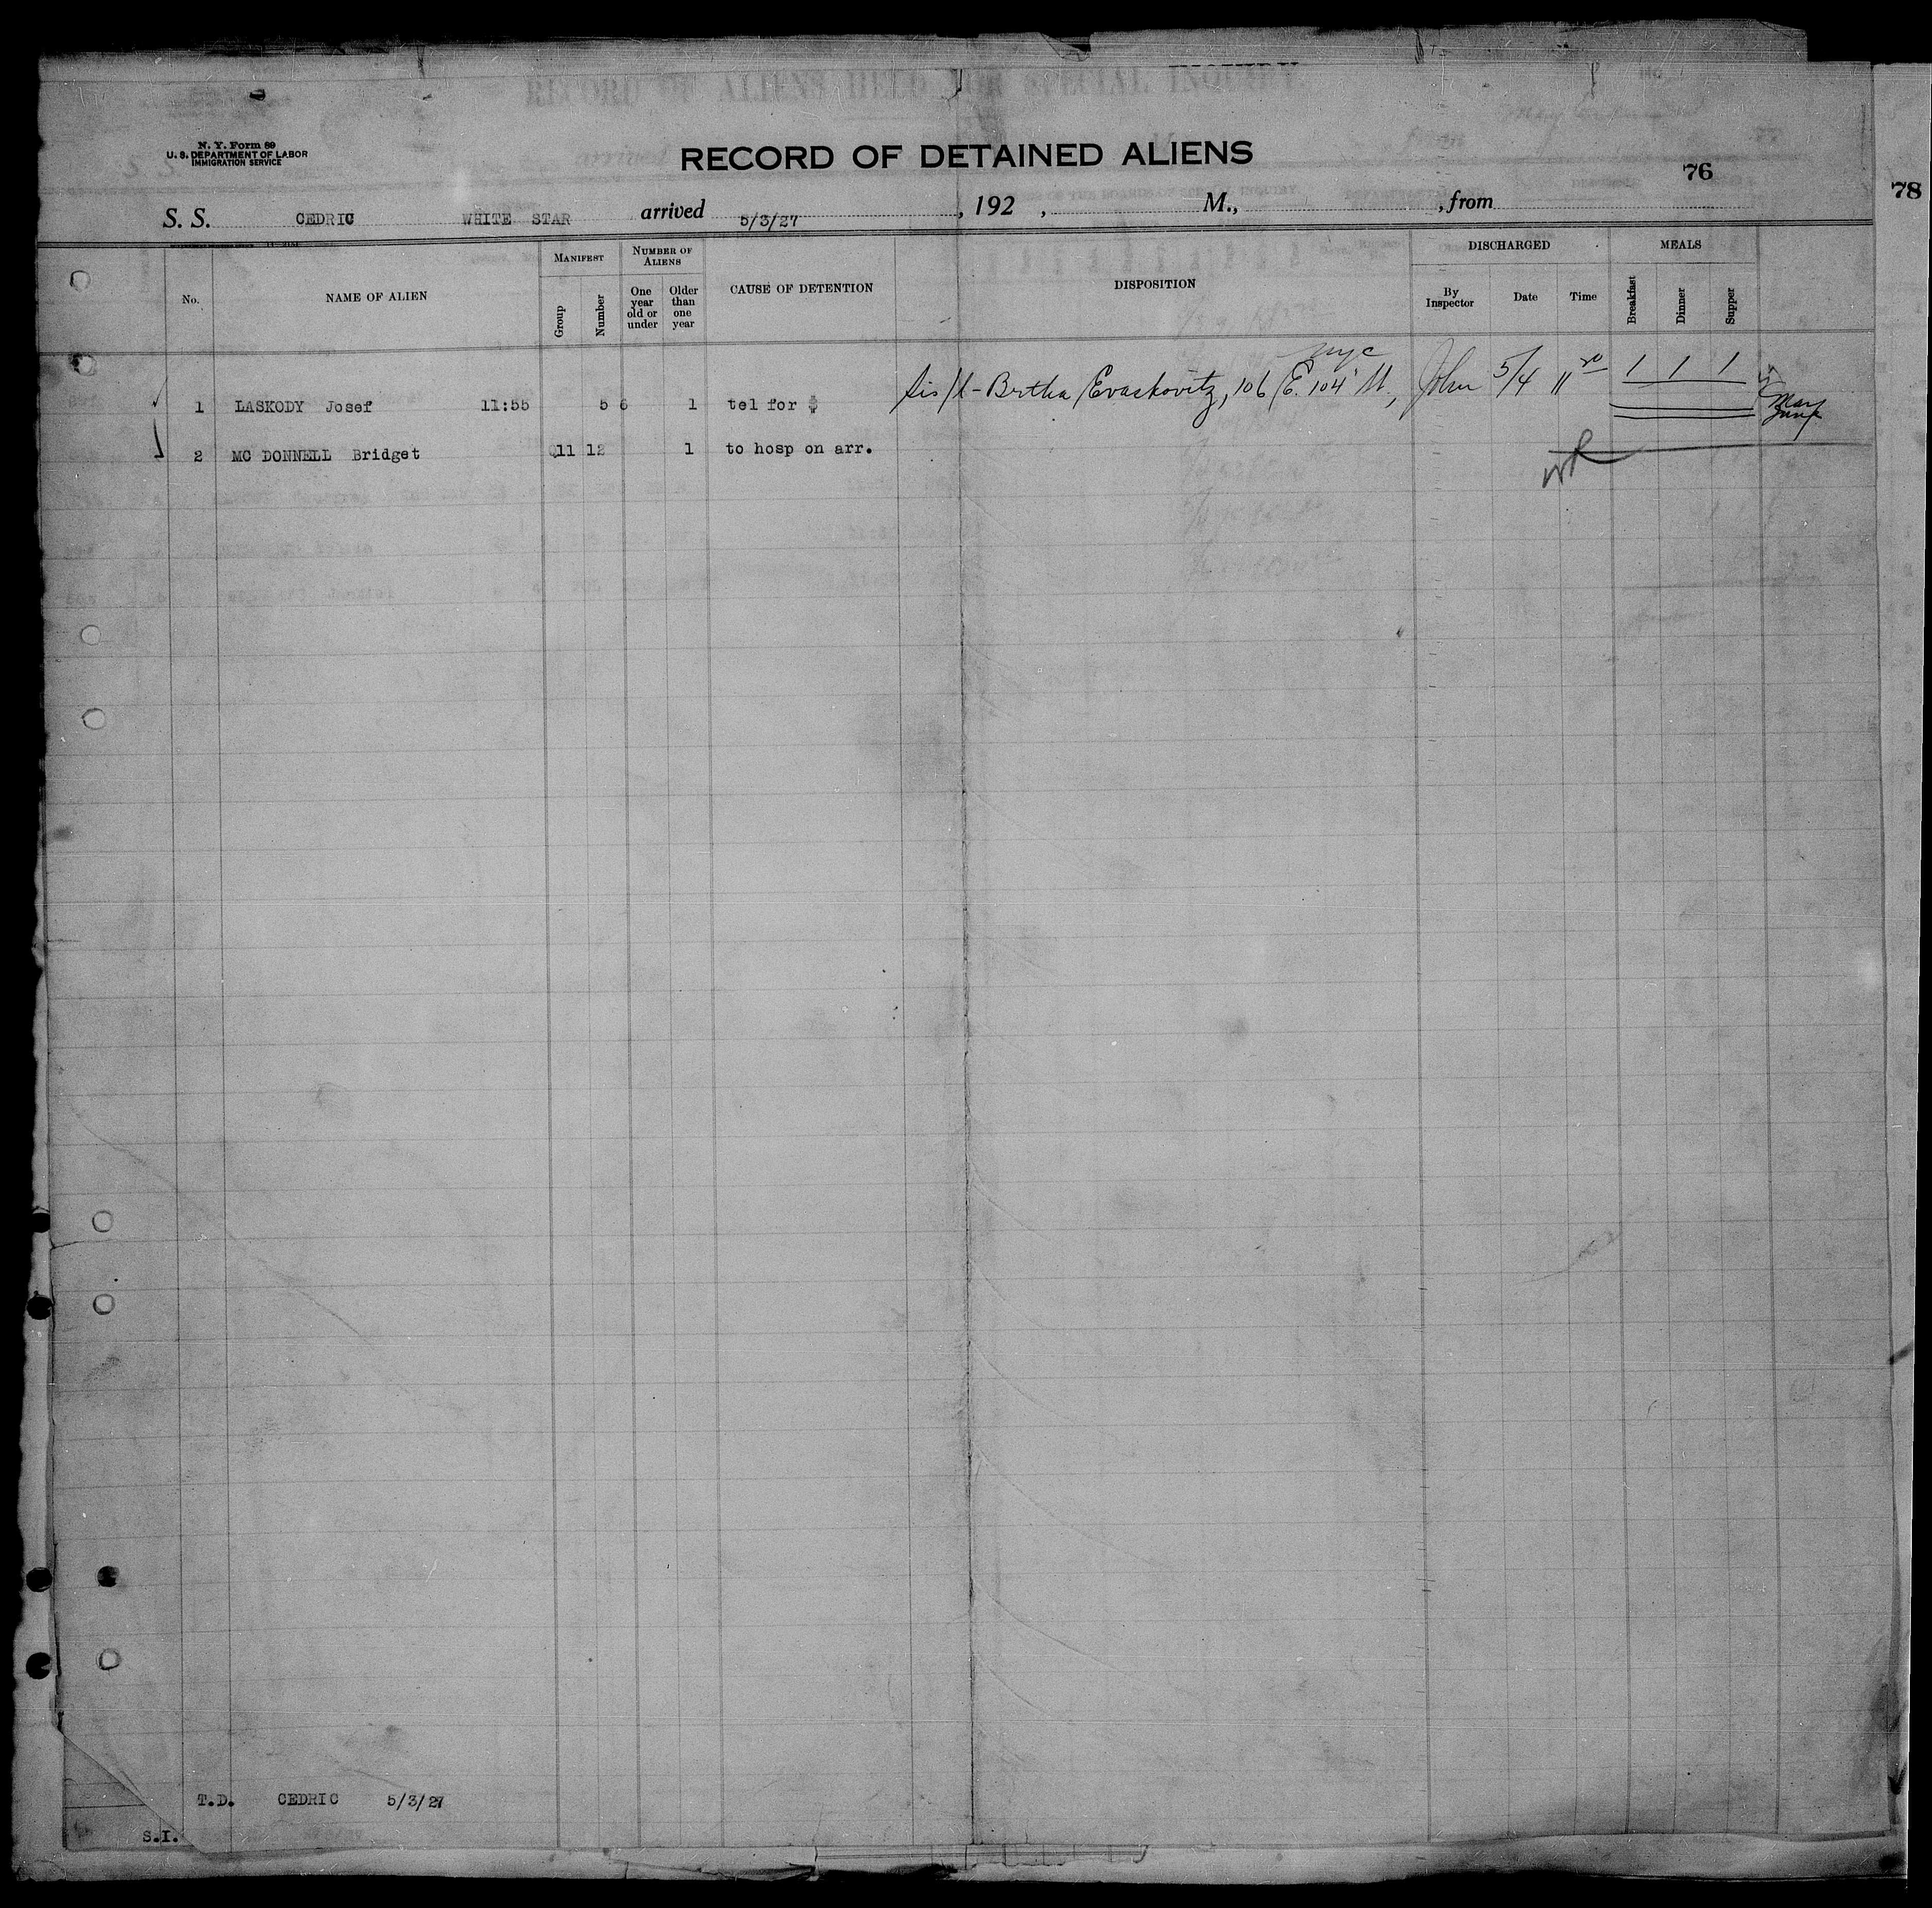 N. Y. Form 89
U. S. DEPARTMENT OF LABOR
IMMIGRATION SERVICE
RECORD OF DETAINED ALIENS
76
78
S. S. CEDRIC WHITE STAR arrived 5/3/27, 192 , M., , from
No. NAME OF ALIEN MANIFEST NUMBER OF ALIENS CAUSE OF DETENTION DISPOSITION DISCHARGED MEALS
Group Number One year old or under Older than one year By Inspector Date Time Breakfast Dinner Supper
nyc
1 LASKODY Josef 11:55 5 6 1 tel for $ sis/l - Bertha Evaskovitz, 106 E. 104' St., John 5/4 11 1 1 1
2 MC DONNELL Bridget 11 12 1 to hosp on arr.
T.D. CEDRIC 5/3/27
S.I.